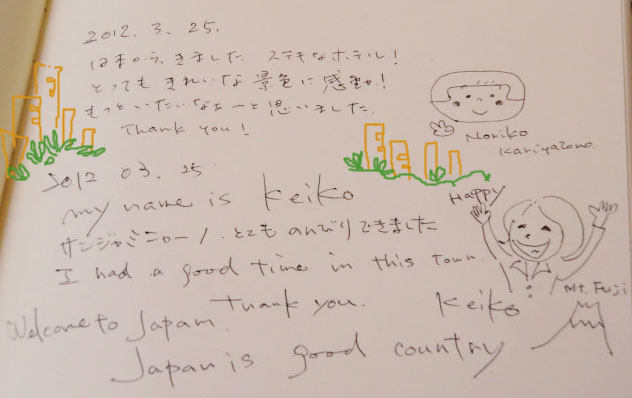 2012. 3. 25.
日本から、きました ステキなホテル!
とっても きれいな 景色に 感動!
もっといたいなぁーと思いました.
Thank you!
Noriko
Kariyazono.
2012 03. 25
my name is Keiko
サンジャミニャーノ、とてものんびりできました
I had a good time in this town.
Thank you. Keiko
Happy
Mt. Fuji
Welcome to Japan.
Japan is good country